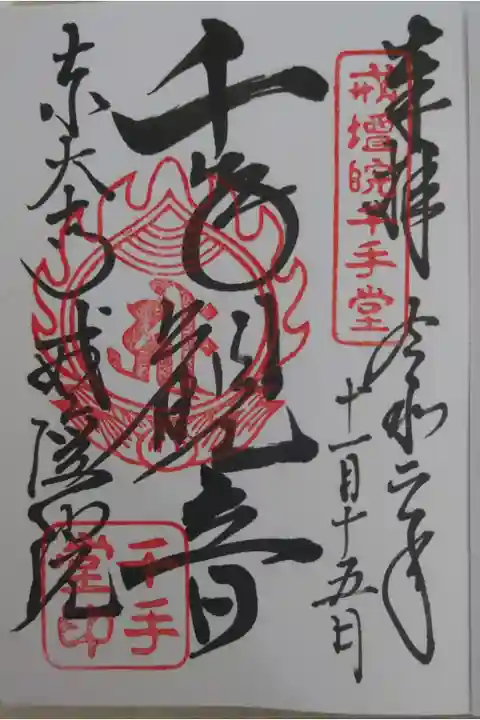 奉拝 令和二年
十一月十五日
戒壇院千手堂
千手觀音
東大寺 戒壇院
千手
堂印